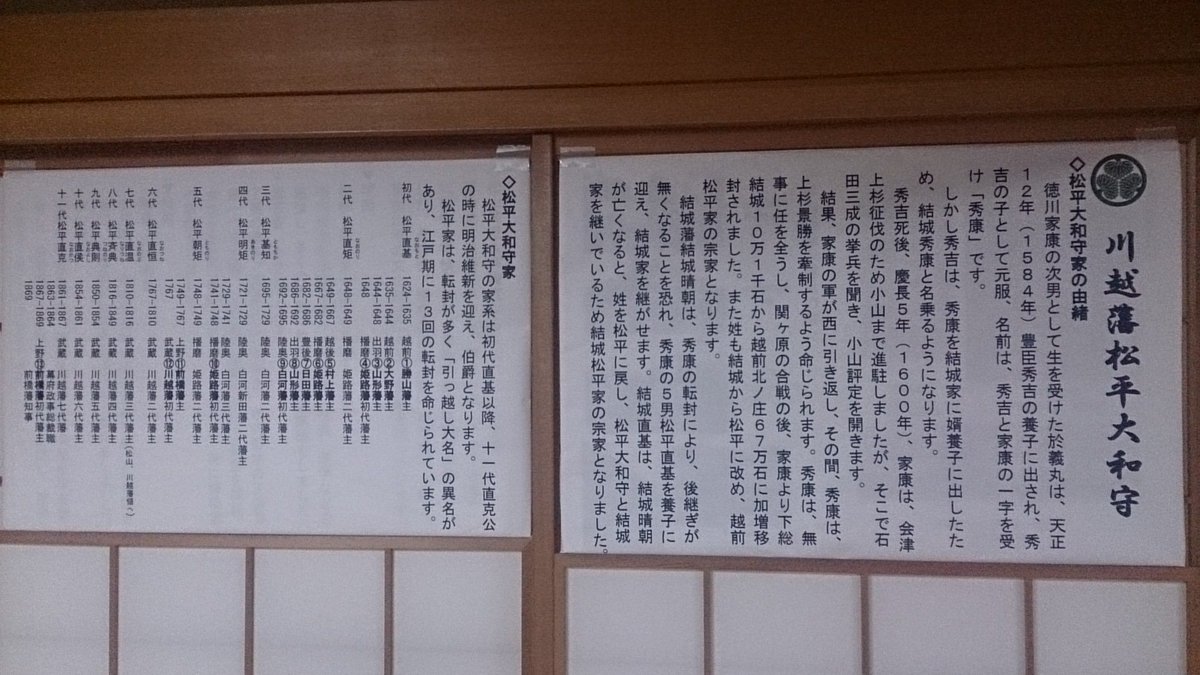 川越藩松平大和守
◇松平大和守家の由緒
徳川家康の次男として生を受けた於義丸は、天正
１２年（１５８４年）豊臣秀吉の養子に出され、秀
吉の子として元服、名前は、秀吉と家康の一字を受
け「秀康」です。
しかし秀吉は、秀康を結城家に婿養子に出したた
め、結城秀康と名乗るようになります。
秀吉死後、慶長５年（１６００年）、家康は、会津
上杉征伐のため小山まで進駐しましたが、そこで石
田三成の挙兵を聞き、小山評定を開きます。
結果、家康の軍が西に引き返し、その間、秀康は、
上杉景勝を牽制するよう命じられます。秀康は、無
事に任を全うし、関ヶ原の合戦の後、家康より下総
結城１０万１千石から越前北ノ庄６７万石に加増移
封されました。また姓も結城から松平に改め、越前
松平家の宗家となります。
結城藩結城晴朝は、秀康の転封により、後継ぎが
無くなることを恐れ、秀康の５男松平直基を養子に
迎え、結城家を継がせます。結城直基は、結城晴朝
が亡くなると、姓を松平に戻し、松平大和守と結城
家を継いでいるため結城松平家の宗家となりました。
◇松平大和守家
松平大和守の家系は初代直基以降、十一代直克公
の時に明治維新を迎え、伯爵となります。
松平家は、転封が多く「引っ越し大名」の異名が
あり、江戸期に１３回の転封を命じられています。
初代 松平直基 1624―1635 越前①勝山藩主
1635―1644 越前②大野藩主
1644―1648 出羽③山形藩主
1648 播磨④姫路藩初代藩主
二代 松平直矩 1648―1649 播磨 姫路藩二代藩主
1649―1667 越後⑤村上藩主
1667―1682 播磨⑥姫路藩主
1682―1686 豊後⑦日田藩主
1686―1692 出羽⑧山形藩主
1692―1695 陸奥⑨白河藩初代藩主
三代 松平基知 1695―1729 陸奥 白河藩二代藩主
四代 松平明矩 1721―1729 陸奥 白河新田藩二代藩主
1729―1741 陸奥 白河藩三代藩主
1741―1748 播磨⑩姫路藩初代藩主
五代 松平朝矩 1748―1749 播磨 姫路藩二代藩主
1749―1767 上野⑪前橋藩主
1767 武蔵⑫川越藩初代藩主
六代 松平直恒 1767―1810 武蔵 川越藩二代藩主
七代 松平直温 1810―1816 武蔵 川越藩三代藩主
八代 松平斉典 1816―1849 武蔵 川越藩四代藩主
九代 松平典則 1850―1854 武蔵 川越藩五代藩主
十代 松平直侯 1854―1861 武蔵 川越藩六代藩主
十一代松平直克 1861―1867 武蔵 川越藩七代藩主
1863―1864 幕府政事総裁職
1867―1869 上野⑬前橋藩初代藩主
1869 前橋藩知事